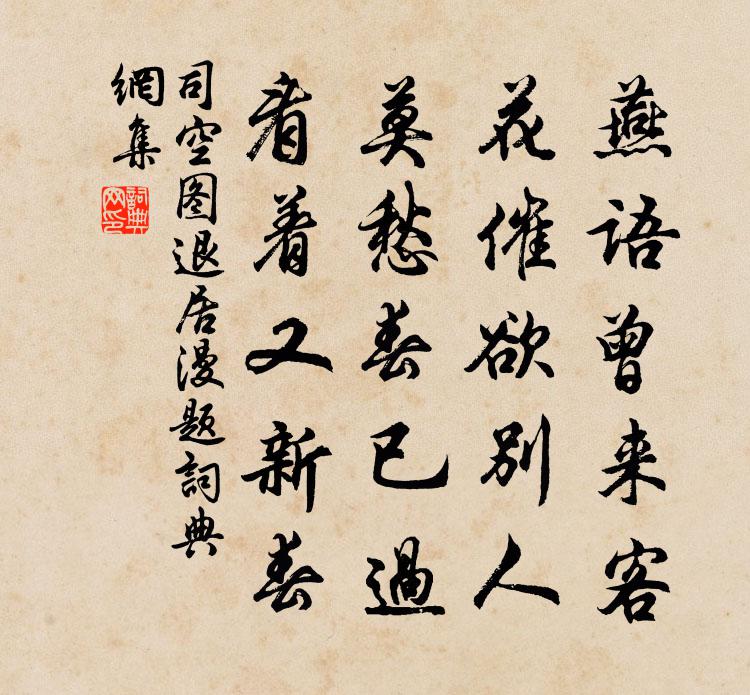 燕語曾来客
花催欲別人
莫愁春已過
看着又新春
司空图退居漫題詞典
網集
詞典网印